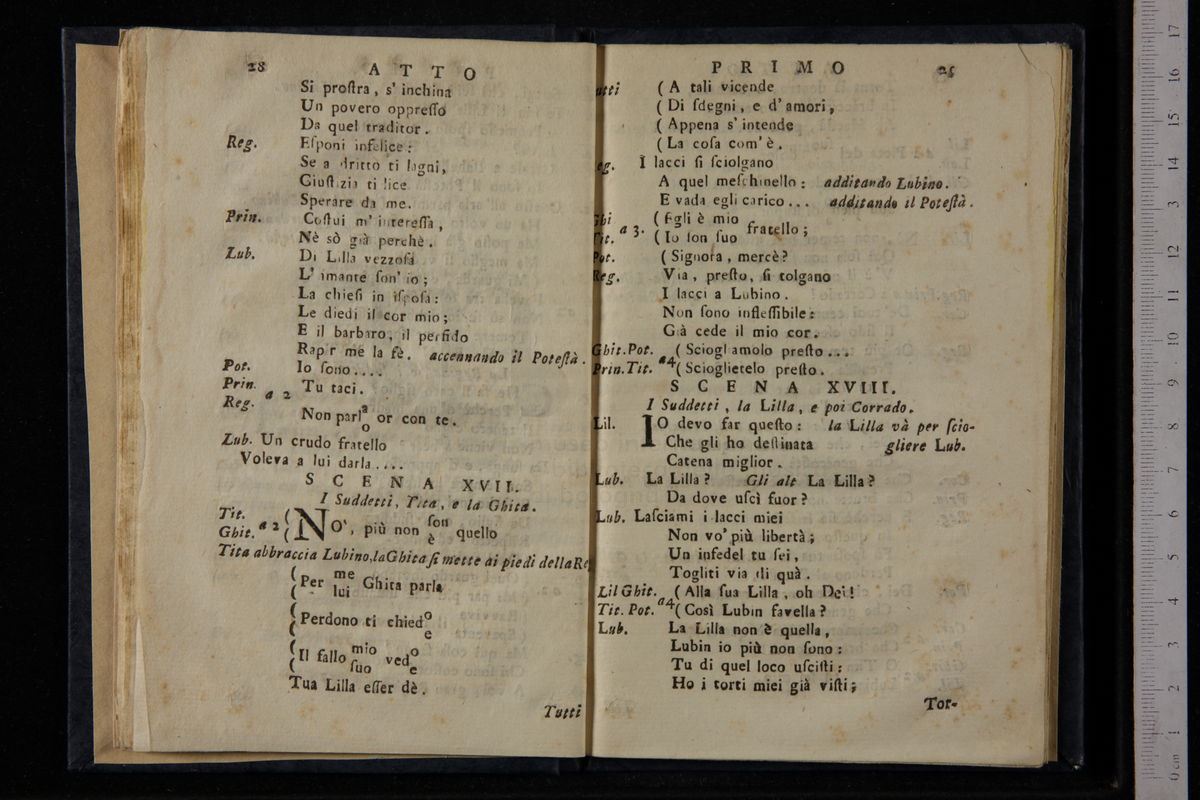 28 ATTO
Si proſtra, s' inchina
Un povero oppreſſo
Da quel traditor.
Reg. Eſponi infelice:
Se a dritto ti lagni,
Giuſtizia ti lice
Sperare da me.
Prin. Coſtui m' intereſſa,
Nè sò già perchè.
Lub. Di Lilla vezzoſa
L' amante ſon' io;
La chieſi in iſpoſa:
Le diedi il cor mio;
E il barbaro, il perfido
Rapir me la fè. accennando il Poteſtà.
Pot. Io ſono....
Prin. Reg. a 2 Tu taci.
Non parl a/o or con te.
Lub. Un crudo fratello
Voleva a lui darla....
SCENA XVII.
I Suddetti, Tita, e la Ghita.
Tit. Ghit. a 2 ( NO', più non ſon/è quello
Tita abbraccia Lubino, la Ghita ſi mette ai piedi della Re
( Per me/lui Ghita parla
( Perdono ti chied o/e
( Il fallo mio/ſuo ved o/e
Tua Lilla eſſer dè.
Tutti
PRIMO 29
utti ( A tali vicende
( Di ſdegni, e d' amori,
( Appena s' intende
( La coſa com' è.
eg. I lacci ſi ſciolgano
A quel meſchinello: additando Lubino.
E vada egli carico... additando il Poteſtà.
Ghi Tit. a 3. ( Egli è mio / ( Io ſon ſuo fratello;
Pot. ( Signora, mercè?
Reg. Via, preſto, ſi tolgano
I lacci a Lubino.
Non ſono infleſſibile:
Già cede il mio cor.
Ghit. Pot. a4 ( Sciogliamolo preſto...
Prin. Tit. ( Scioglietelo preſto.
SCENA XVIII.
I Suddetti, la Lilla, e poi Corrado.
Lil. IO devo far queſto: la Lilla và per ſcio-
Che gli ho deſtinata gliere Lub.
Catena miglior.
Lub. La Lilla? Gli alt La Lilla?
Da dove uſcì fuor?
Lub. Laſciami i lacci miei
Non vo' più libertà;
Un infedel tu ſei,
Togliti via di quà.
Lil Ghit. a4 ( Alla ſua Lilla, oh Dei!
Tit. Pot. ( Così Lubin favella?
Lub. La Lilla non è quella,
Lubin io più non ſono:
Tu di quel loco uſciſti:
Ho i torti miei già viſti;
Tor-